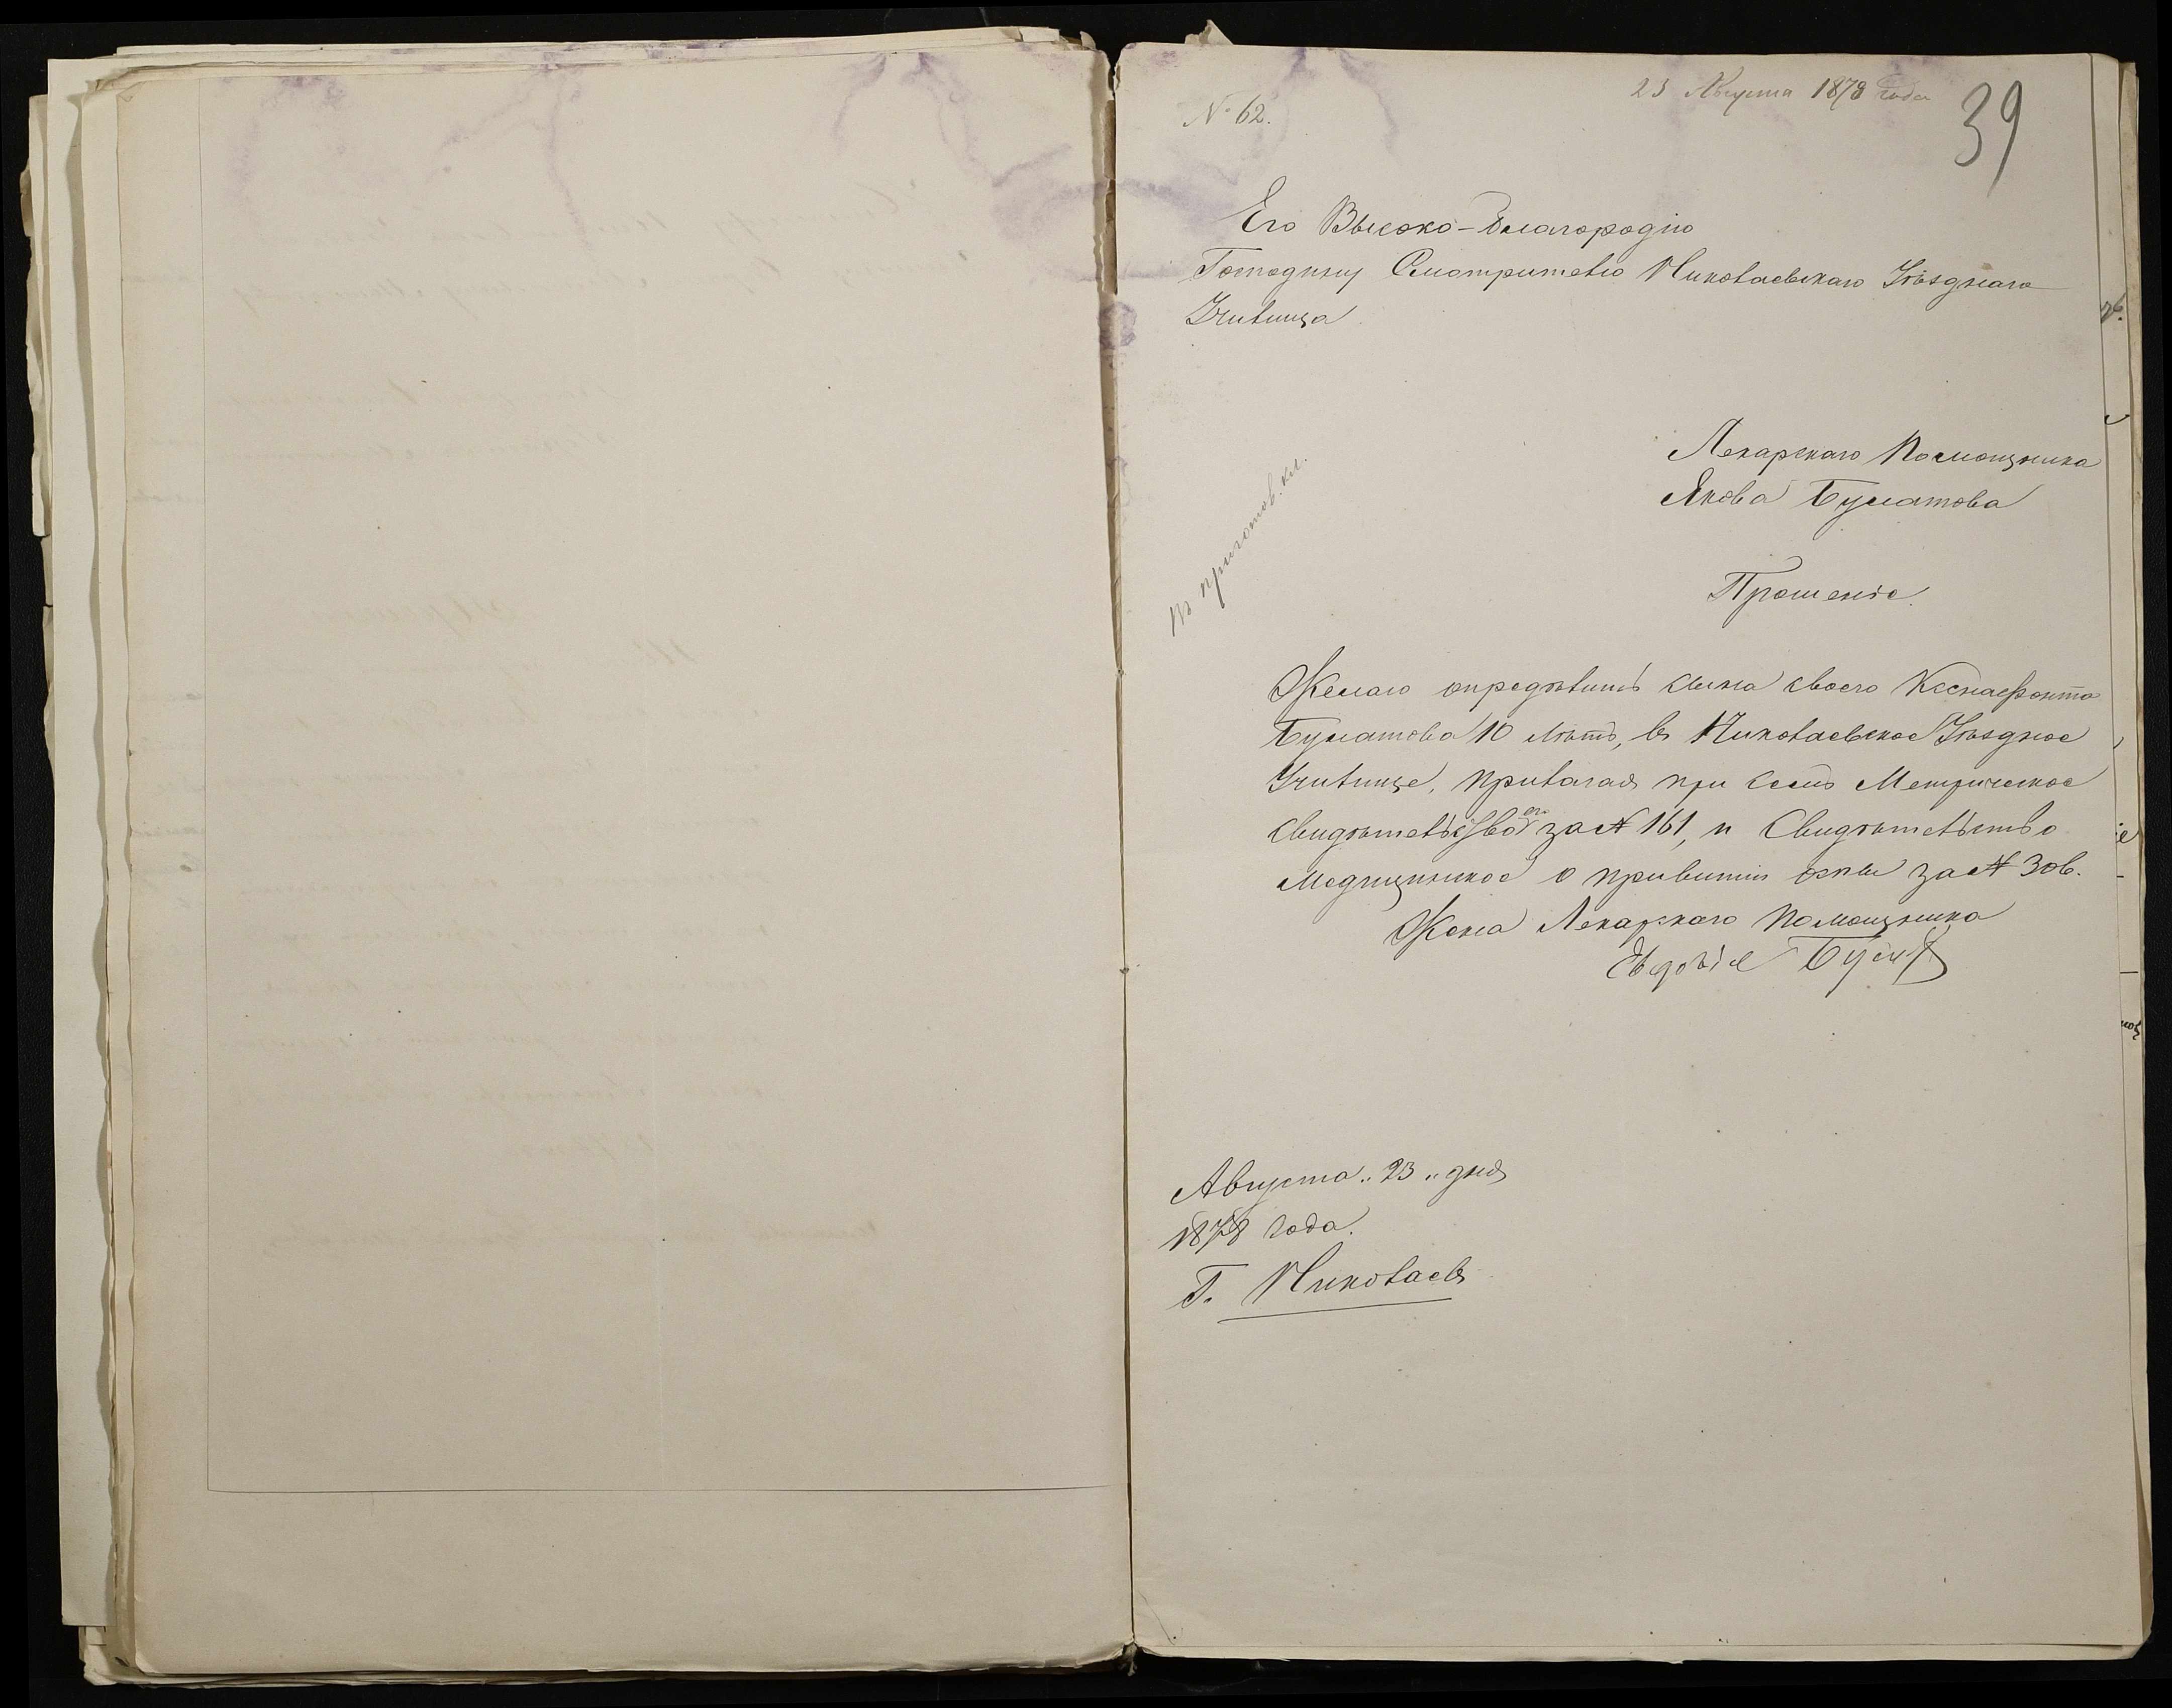 23 Августа 1878 года
39
№ 62.
Его Высоко-благородію
Господину Смотрителю Николаевскаго Уѣзднаго
Училища
въ приготов. кл.
Лекарскаго Помощника
Якова Булатова
Прошеніе
Желаю опредѣлить сына своего Ксенофонта
Булатова 10 лѣтъ, въ Николаевское Уѣздное
Училище, прилагая при семъ Метрическое
свидѣтельство его за № 161, и Свидѣтельство
Медицинское о привитіи оспы за №
Жена Лекарскаго Помощника
Евдокія
Августа „23„ дня
1878 года.
Г. Николаевъ